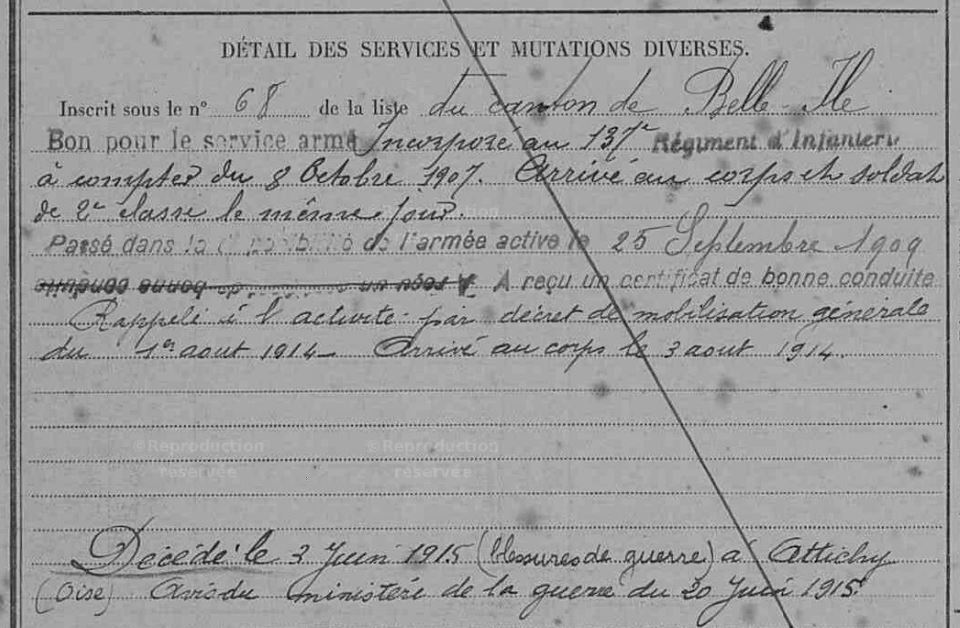 DÉTAIL DES SERVICES ET MUTATIONS DIVERSES.
Inscrit sous le n° 68 de la liste du canton de Belle-Ile
Bon pour le service armé Incorporé au 137e Régiment d'Infanterie
à compter du 8 Octobre 1907. Arrivé au corps et soldat
de 2e classe le même jour.
Passé dans la disponibilité de l'armée active le 25 Septembre 1909
A reçu un certificat de bonne conduite
Rappelé à l'activité par décret de mobilisation générale
du 1er aout 1914 Arrivé au corps le 3 aout 1914.
©Reproduction ©Reproduction
réservée réservée
Décédé le 3 Juin 1915 (blessures de guerre) à Attichy
(Oise) Avis du ministère de la guerre du 20 Juin 1915.